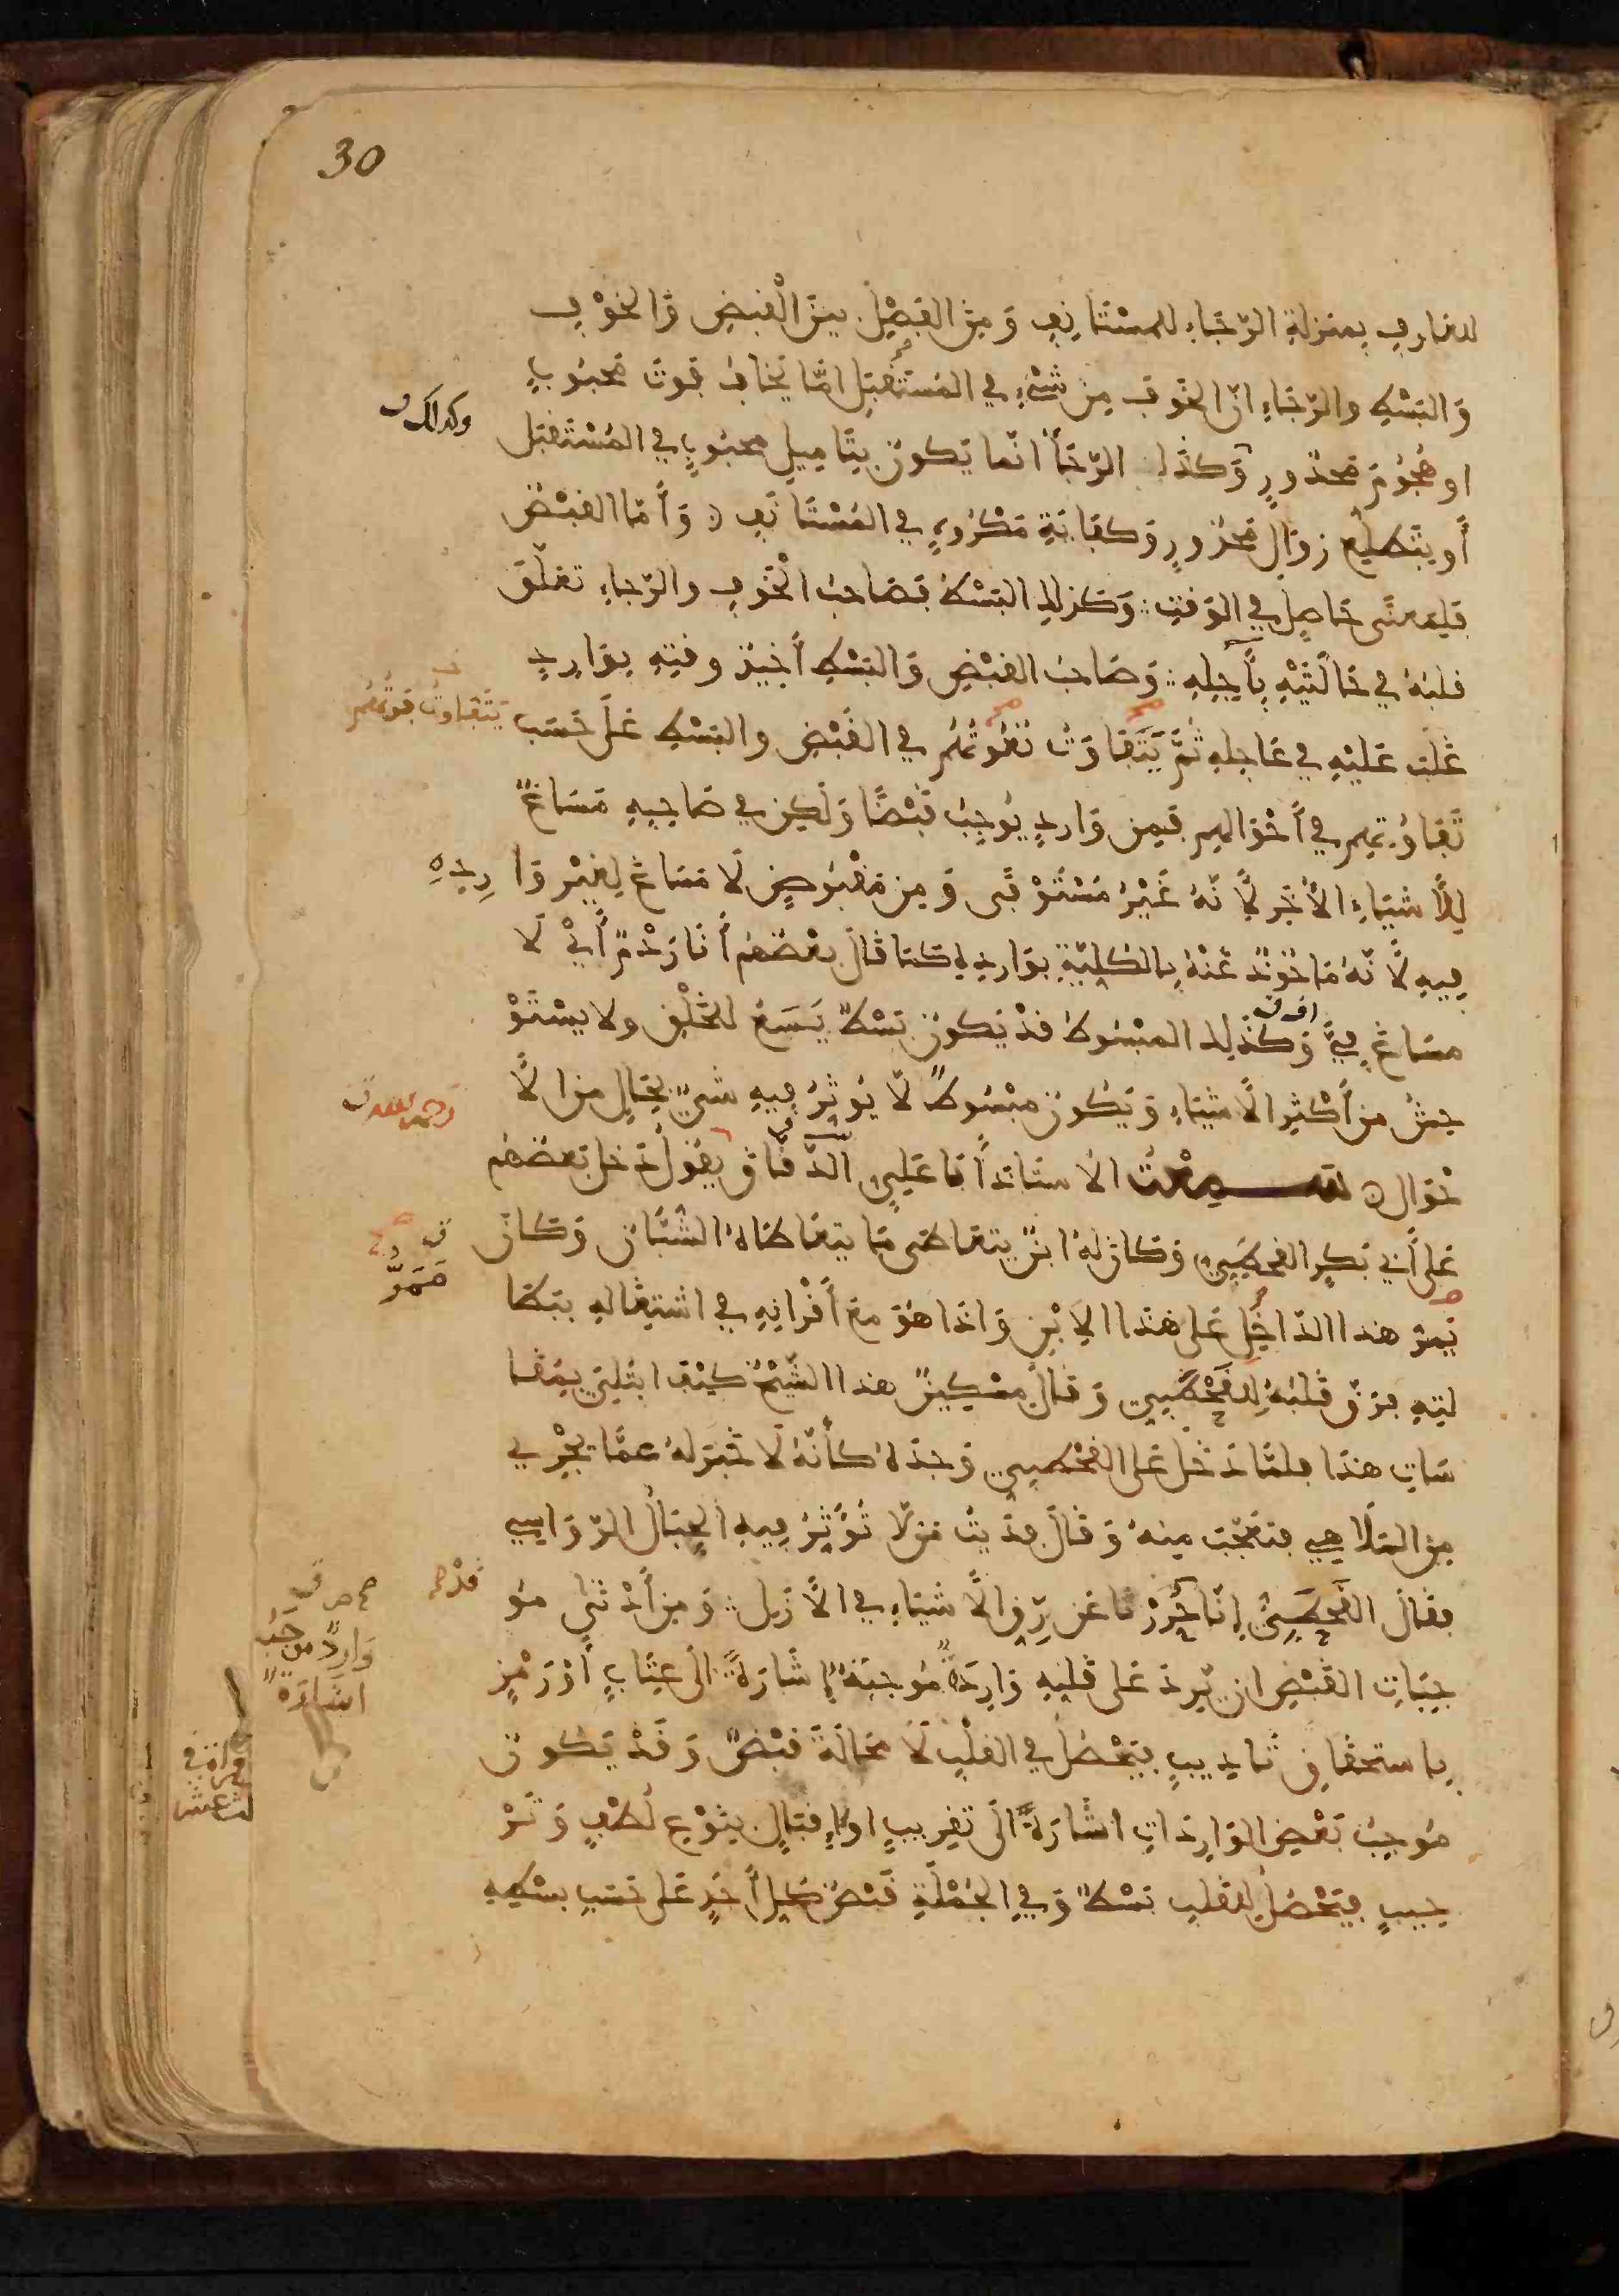 30
للعارف بمنزلة الرّجاءِ للمسْتَانِفِ وَمِنَ الفصْلِ بينَ الْقبضِ وَالخوْفِ
وَالبَسْطِ والرّجَاءِ انّ الخَوفَ مِن شَيْءٍ في المُسْتَقبَلِ امّا يَخافُ فوتَ مَحبُوبٍ
او هُجُومَ مَحذورٍ وَكذا الرّجَأ انّما يَكونُ بِتَامِيلِ محبُوبٍ في المُسْتَقبَل
وكذلك
أو بتَطلّعِ زوالِ مَحْذورٍ وَكفايَةِ مَكْرُوهٍ في المُسْتَانَفِ وَأمّا القبْضُ
فلِمَعنًى حَاصِلٍ في الوَقتِ وَكذلِك البَسْطُ فصَاحبُ الْخَوفِ والرّجاءِ تعلّقَ
قلبُهُ في حَالَتَيْهِ بِأَجِلِهِ وَصَاحبُ القبْضِ وَالبَسْطِ أخيذُ وقتِهِ بوَارِدٍ
غلَبَ عَلَيْهِ في عَاجِلهِ ثمَّ يَتَفَاوَتُ نُعُوتُهُم في القَبْضِ والبَسْطِ عَلَى حَسَبِ
يَتَفاوتُ قوتُهُم
تَفاوُتِهِم في أحْوَالهِم فمِن وَارِدٍ يُوجِبُ قَبْضًا وَلَكِن في صَاحِبِهِ مَسَاغٌ
لِلأشيَاءِ الأُخَرِ لِأنّهُ غَيْرُ مُسْتَوْفًى وَمِن مَقْبُوضٍ لَا مَسَاغَ لِغَيْرِ وَارِدِهِ
فِيهِ لأنّهُ مَاخُوذٌ عَنْهُ بِالكُلِيّةِ بوَارِدِهِ كمَا قَالَ بعْضُهُم أنَا رَدْمٌ أيْ لَا
مسَاغَ فِيَّ وَكذَلِك المبْسُوطُ قدْ يَكونُ بَسْطٌ يَسَعُ للخَلْقِ ولا يسْتَوْ
حِشُ من أكْثرِ الأشيَاءِ وَيَكُونُ مبْسُوطٌ لَا يُوثِرُ فِيهِ شيْءٌ بحَالٍ من الأ
حْوَالِ سَمِعْتُ الاستاذَ أبَا عَليٍّ الدَّقّاق يقُولُ دَخلَ بعضُهُم
رحمه الله
عَلى أبي بَكرٍ القحطَبيِّ وَكانَ لهُ ابنٌ يتعَاطى مَا يتعَاطاهُ الشُّبّانُ وَكانَ
مَمَرُّ
يَمرُّ هذا الدّاخِلِ عَلى هَذا الِابْنِ وَاذَا هوَ معَ أقْرَانِهِ في اشتِغَالهِ ببَطا
لتِهِ فرَقَّ قَلبُهُ لِلقَحْطَبيِّ وَقالَ مِسْكِينٌ هذا الشّيْخُ كيْفَ ابتُلِيَ بمُقا
سَاتِ هَذا فلمّا دَخَلَ عَلى القَحْطَبيِّ وَجَدَهُ كَأنّهُ لَا خَبَرَ لهُ عمّا يَجْرِي
مِنَ المَلَاهِي فتَعَجّبَ مِنهُ وَقَالَ فدَيتُ مَن لَا تُؤَثِّرُ فيهِ الجِبَالُ الرّوَاسِي
فقَالَ القَحطَبيُّ إنّا حُرِّرْنا عَن رِقِّ الأشيَاءِ في الأزَلِ وَمِن أدْنَى مُو
قدْ
جِبَاتِ القَبْضِ ان يَّرِدَ عَلى قَلبِهِ وَارِدَةٌ مُوجبَةٌ إشَارَةً الى عِتَابٍ أوْ رَمْزٍ
وَارِدٌ موجب
اشارةٌ
بِاستحقَاقِ تَادِيبٍ فيَحْصُلُ في القلْبِ لَا مَحَالَةَ قَبْضٌ وَقَدْ يَكُونُ
مُوجبُ بَعْضِ الوَارِدَاتِ اشَارَةً الى تَقرِيبٍ او إقبَالٍ بنَوْعِ لُطْفٍ وَتَرْ
حِيبٍ فيَحْصُلُ لِلقَلبِ بَسْطٌ وَفِي الجُمْلَةِ قَبْضُ كلِّ أحَدٍ عَلى حَسَبِ بسْطِهِ